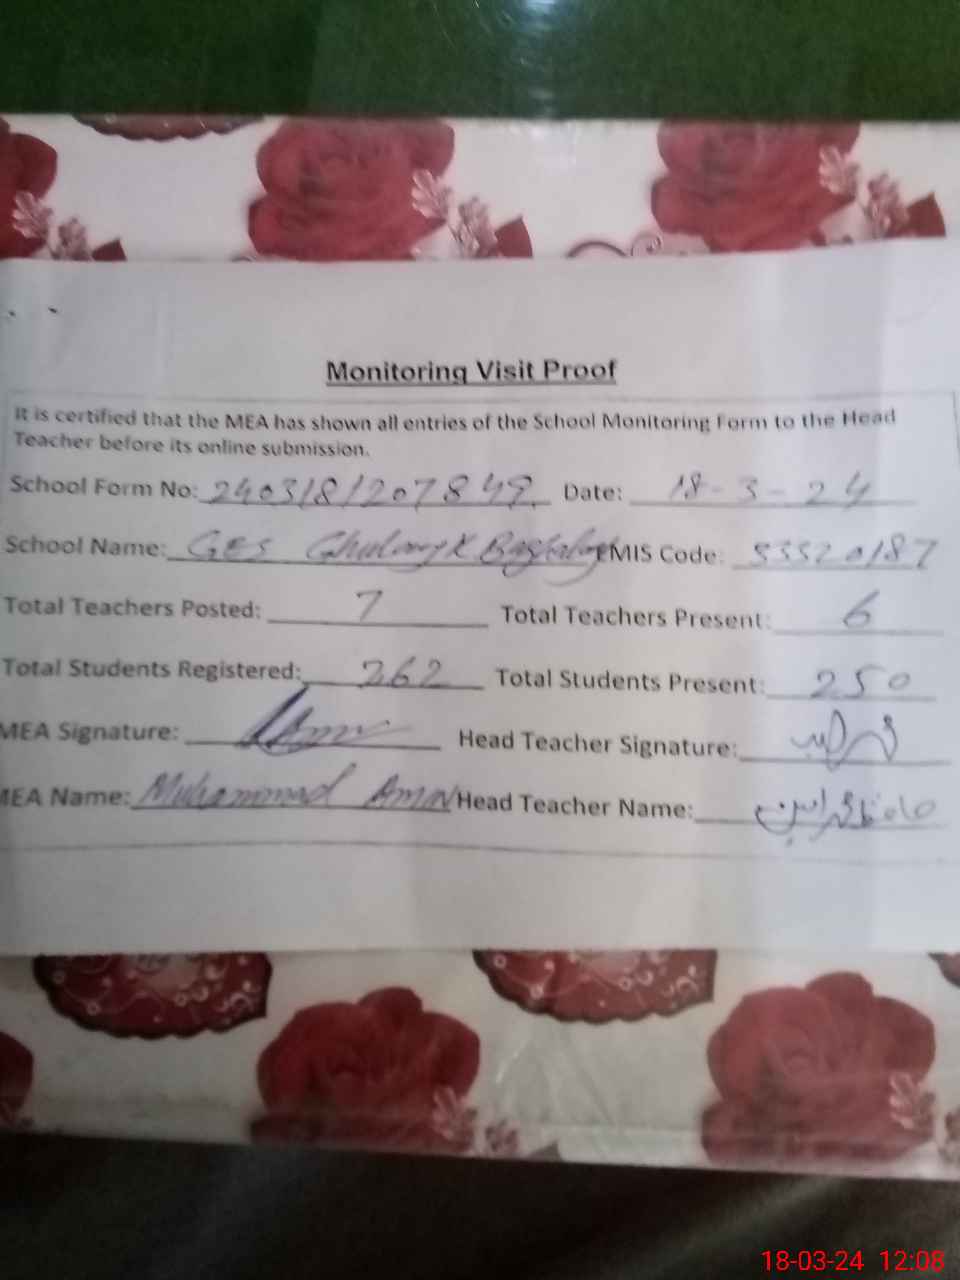 Monitoring Visit Proof
It is certified that the MEA has shown all entries of the School Monitoring Form to the Head
Teacher before its online submission.
School Form No: 2403181207849 Date: 18-3-24
School Name: GES EMIS Code: 53520187
Total Teachers Posted: 7 Total Teachers Present: 6
Total Students Registered: 262 Total Students Present: 250
MEA Signature: Head Teacher Signature:
MEA Name: Muhammad Amin Head Teacher Name:
18-03-24 12:08